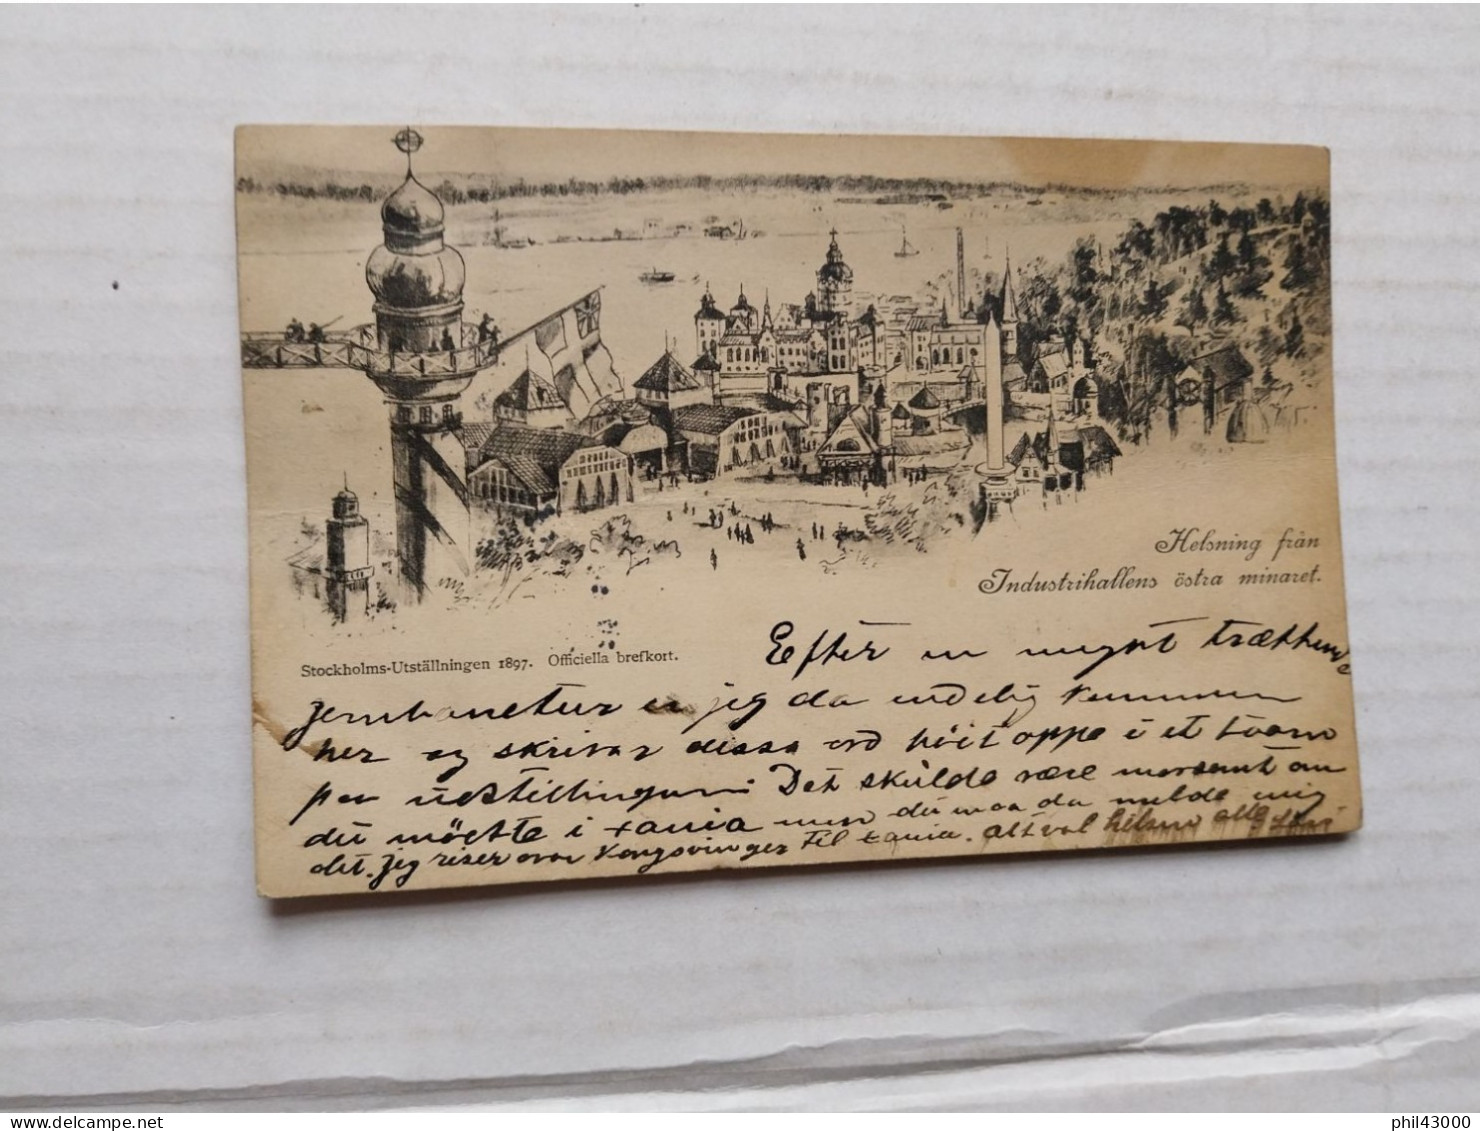 Helsning från
Industrihallens östra minaret.
Stockholms-Utställningen 1897. Officiella brefkort.
Efter en mygst trættkende
jernbanetur er jeg da endelig kommen
her og skriver disse ord höit oppe i et taarn
paa udstillingen. Det skulde være morsomt om
du möchte i Xania men du maa da melde mig
det. jeg reiser over Kongsvinger til Xania. Altsaa hilsen alle
phil43000